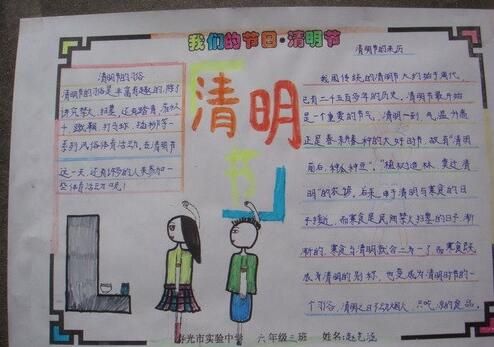 我们的节日·清明节
清明节的习俗
清明节的习俗是丰富有趣的,除了
讲究禁火、扫墓,还有踏青、荡秋
千、蹴鞠、打马球、插柳等一
系列风俗体育活动,在清明节
这一天,还有许多的人来参加一
些体育活动呢!
清明
节
清明节的来历
我国传统的清明节大约始于周代,
已有二千五百多年的历史。清明节最开始
是一个重要的节气,清明一到,气温升高
正是春耕春种的大好时节,故有“清明
前后,种瓜种豆”,“植树造林,莫过清
明”的农谚。后来,由于清明与寒食的日
子接近,而寒食是民间禁火扫墓的日子,渐
渐的,寒食与清明就合二为一了,而寒食既
成为清明的别称,也变成为清明时节的一
个习俗,清明之日不动烟火,只吃凉的食品。
寿光市实验中学 六年级三班 姓名: